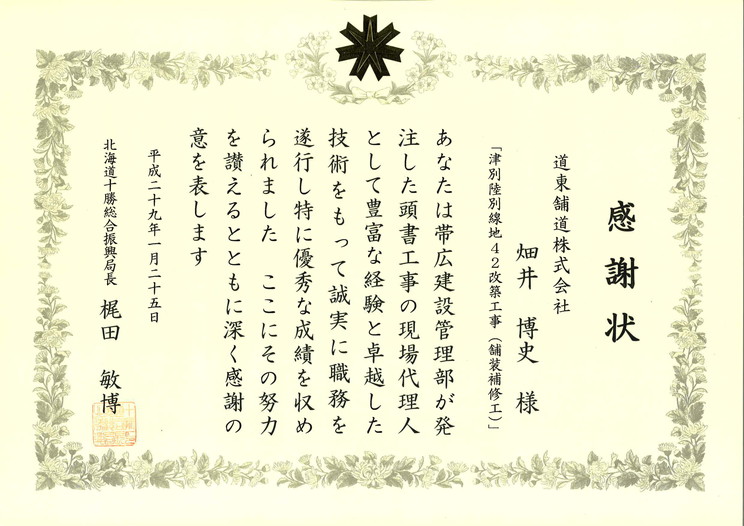 感謝状
道東舗道株式会社
畑井 博史 様
「津別陸別線地４２改築工事（舗装補修工）」
あなたは帯広建設管理部が発
注した頭書工事の現場代理人
として豊富な経験と卓越した
技術をもって誠実に職務を
遂行し特に優秀な成績を収め
られました ここにその努力
を讃えるとともに深く感謝の
意を表します
平成二十九年一月二十五日
北海道十勝総合振興局長 梶田 敏博